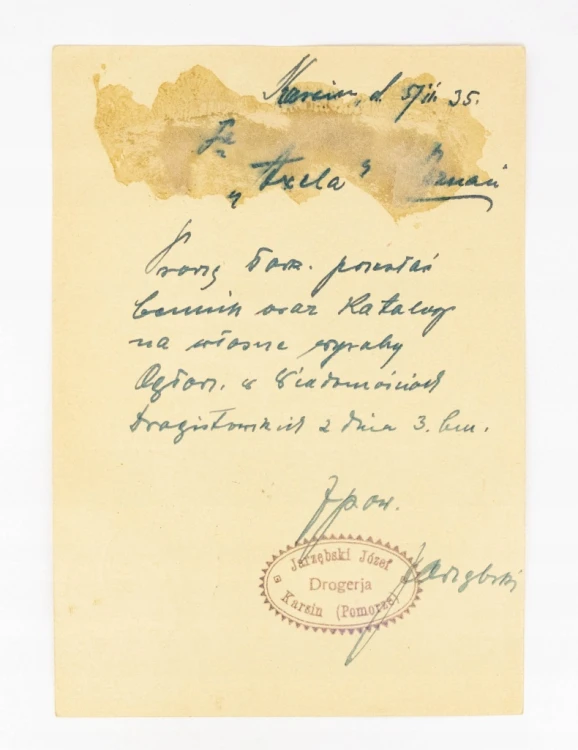 Karsin, d. 5/II. 35.
Fa
"Axela" Poznań
Proszę łask. przesłać
cennik oraz Katalog
na własne wyroby
Ogłosz. w Wiadomościach
Drogistowskich z dnia 3. bm.
Z pow.
Jarzębski
Jarzębski Józef
Drogerja
Karsin (Pomorze)